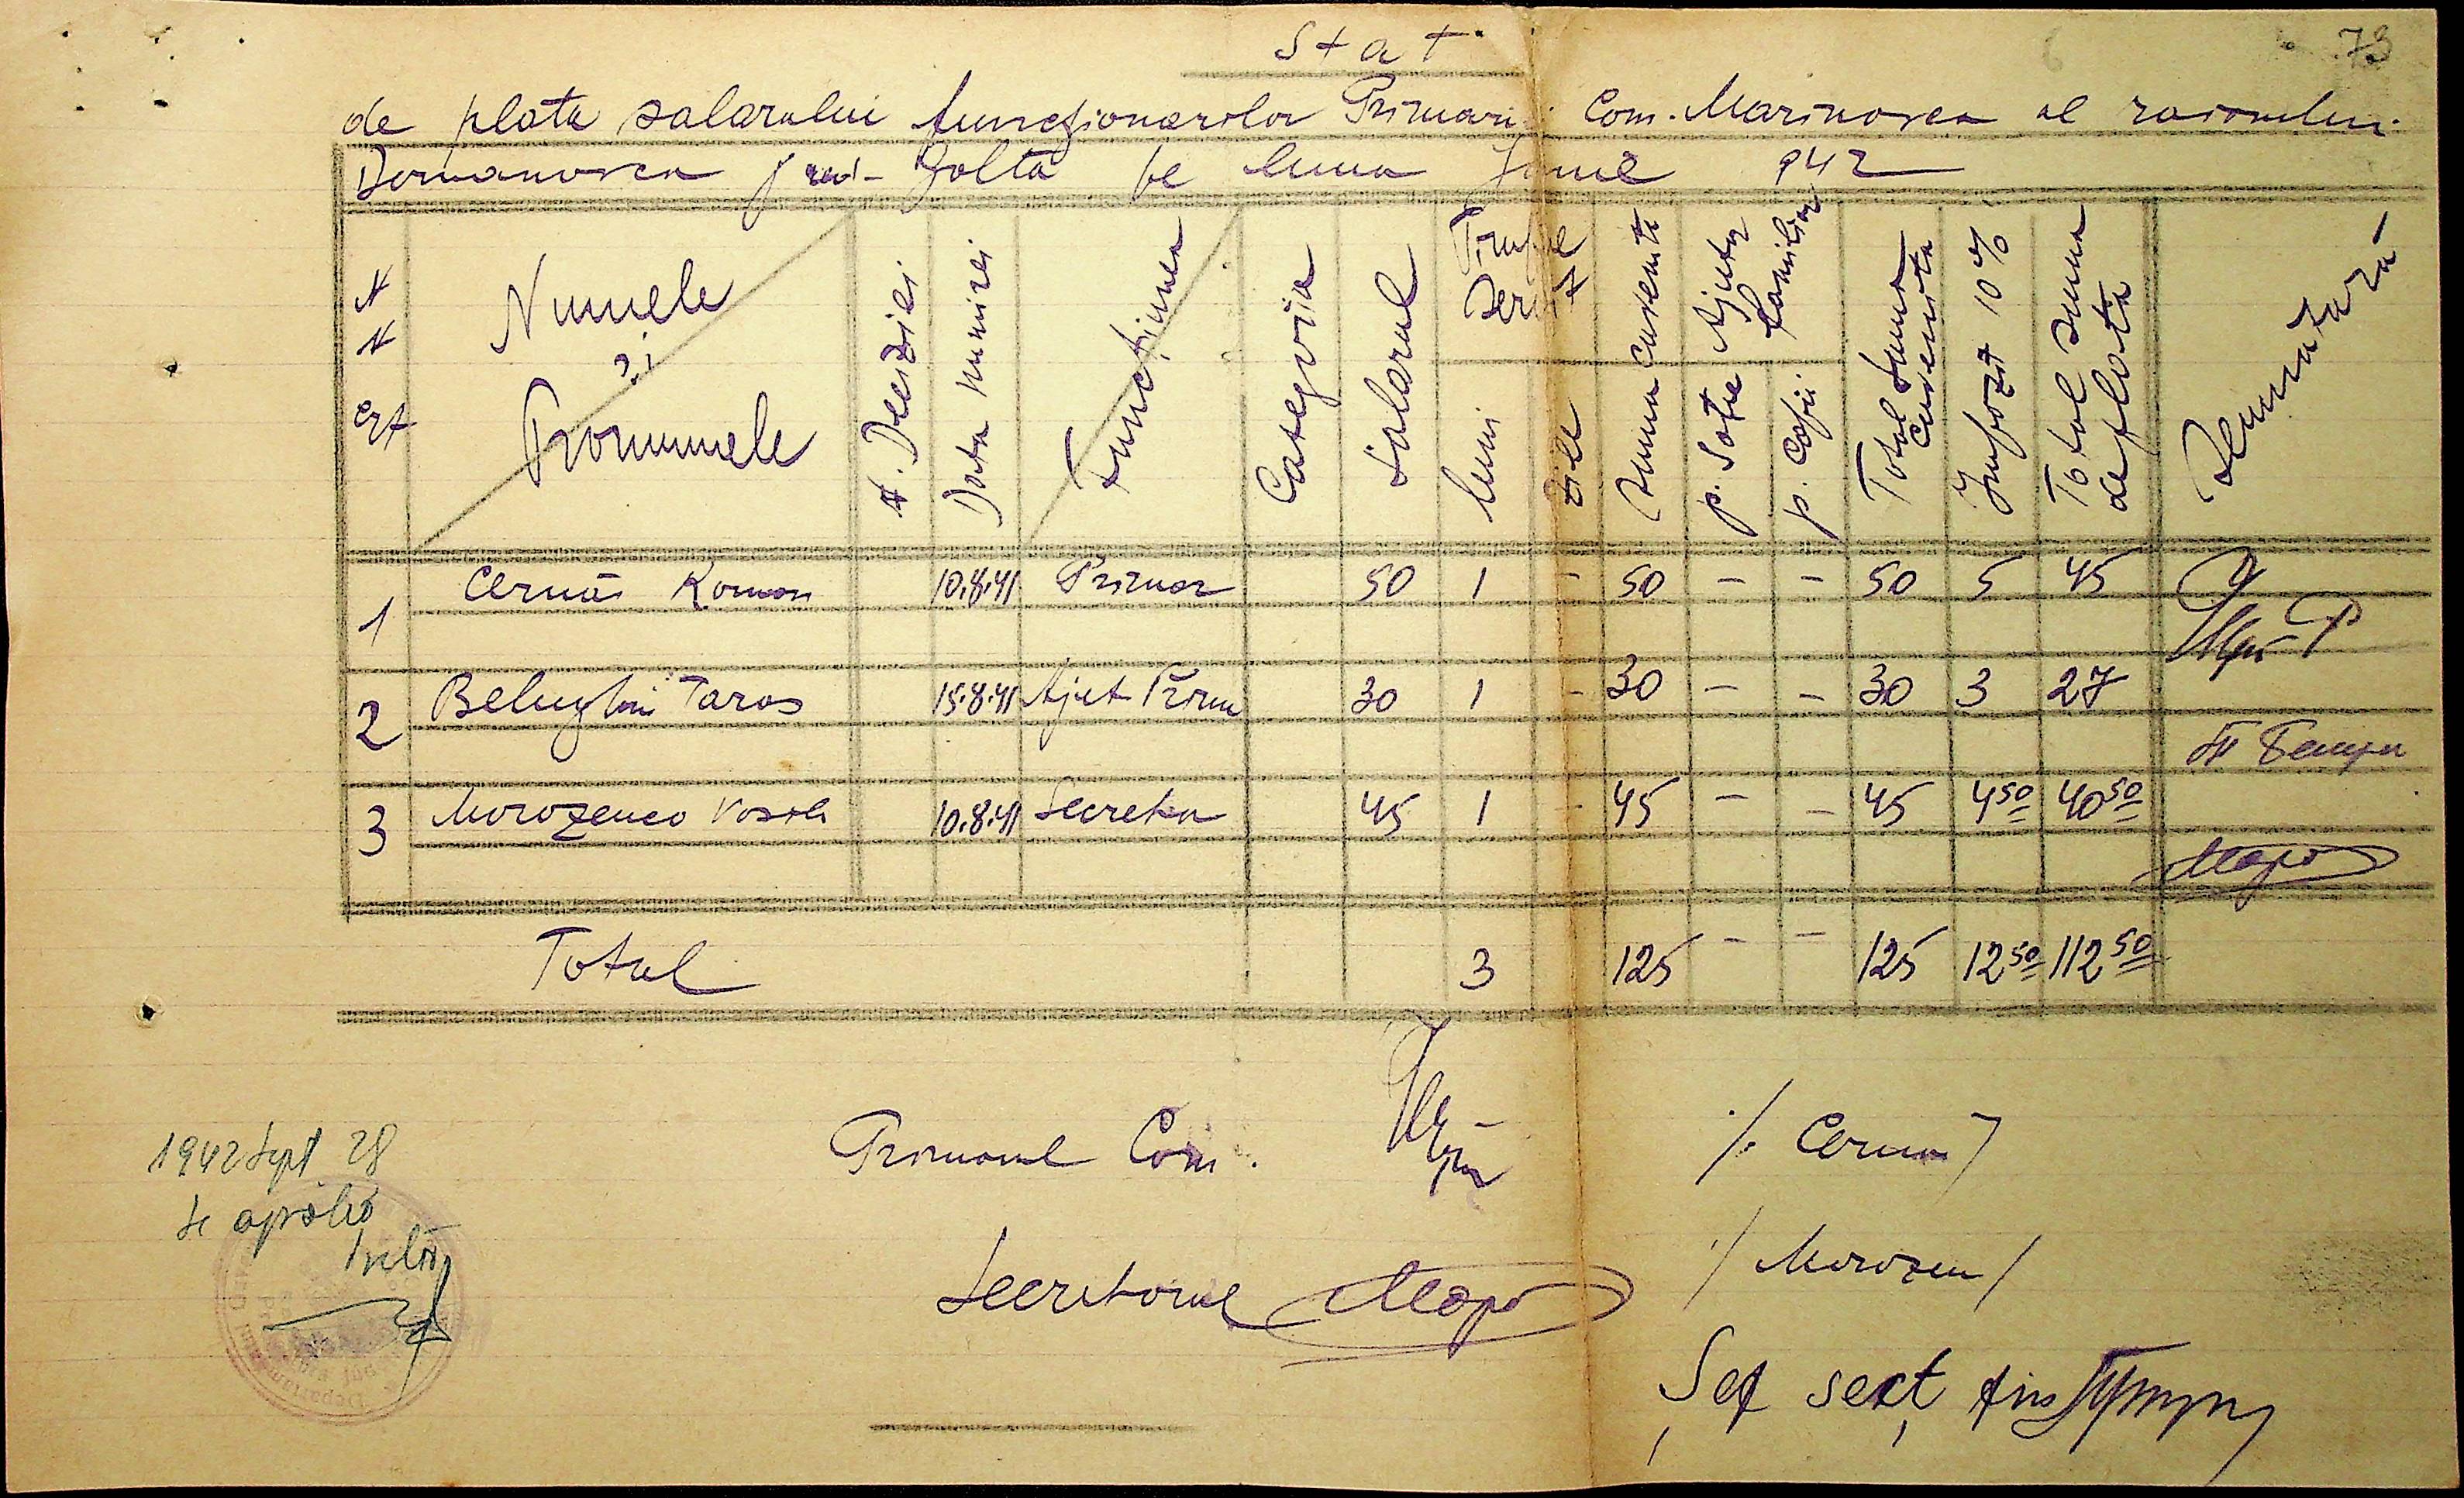 73
Stat
de plata salarului funcționarilor Primarii Com. Marinovca al raionului
Domanovca jud- Golta pe luna Iunie 942
N N Crt
Numele și Pronumele
N. Deciziei
Data numirei
Funcțiunea
Categoria
Salarul
Timpul Servit
luni
zile
Suma cuvenita
Ajutor familiar
p. Soție
p. Copii
Total Suma Cuvenita
Impozit 10%
Total suma de plata
Semnatura
1 Cernăi Roman 10.8.41 Primar 50 1 - 50 - - 50 5 45
2 Belughin Taras 15.8.41 Ajut Prim 30 1 - 30 - - 30 3 27
3 Morozenco Vasile 10.8.41 Secretar 45 1 - 45 - - 45 4 50 40 50
Total 3 125 - - 125 12 50 112 50
Primarul Com. /. Cernăi /
1942 Sept 28
Se aprobă
Secretarul Моро / Morozen /
Șef secț fin